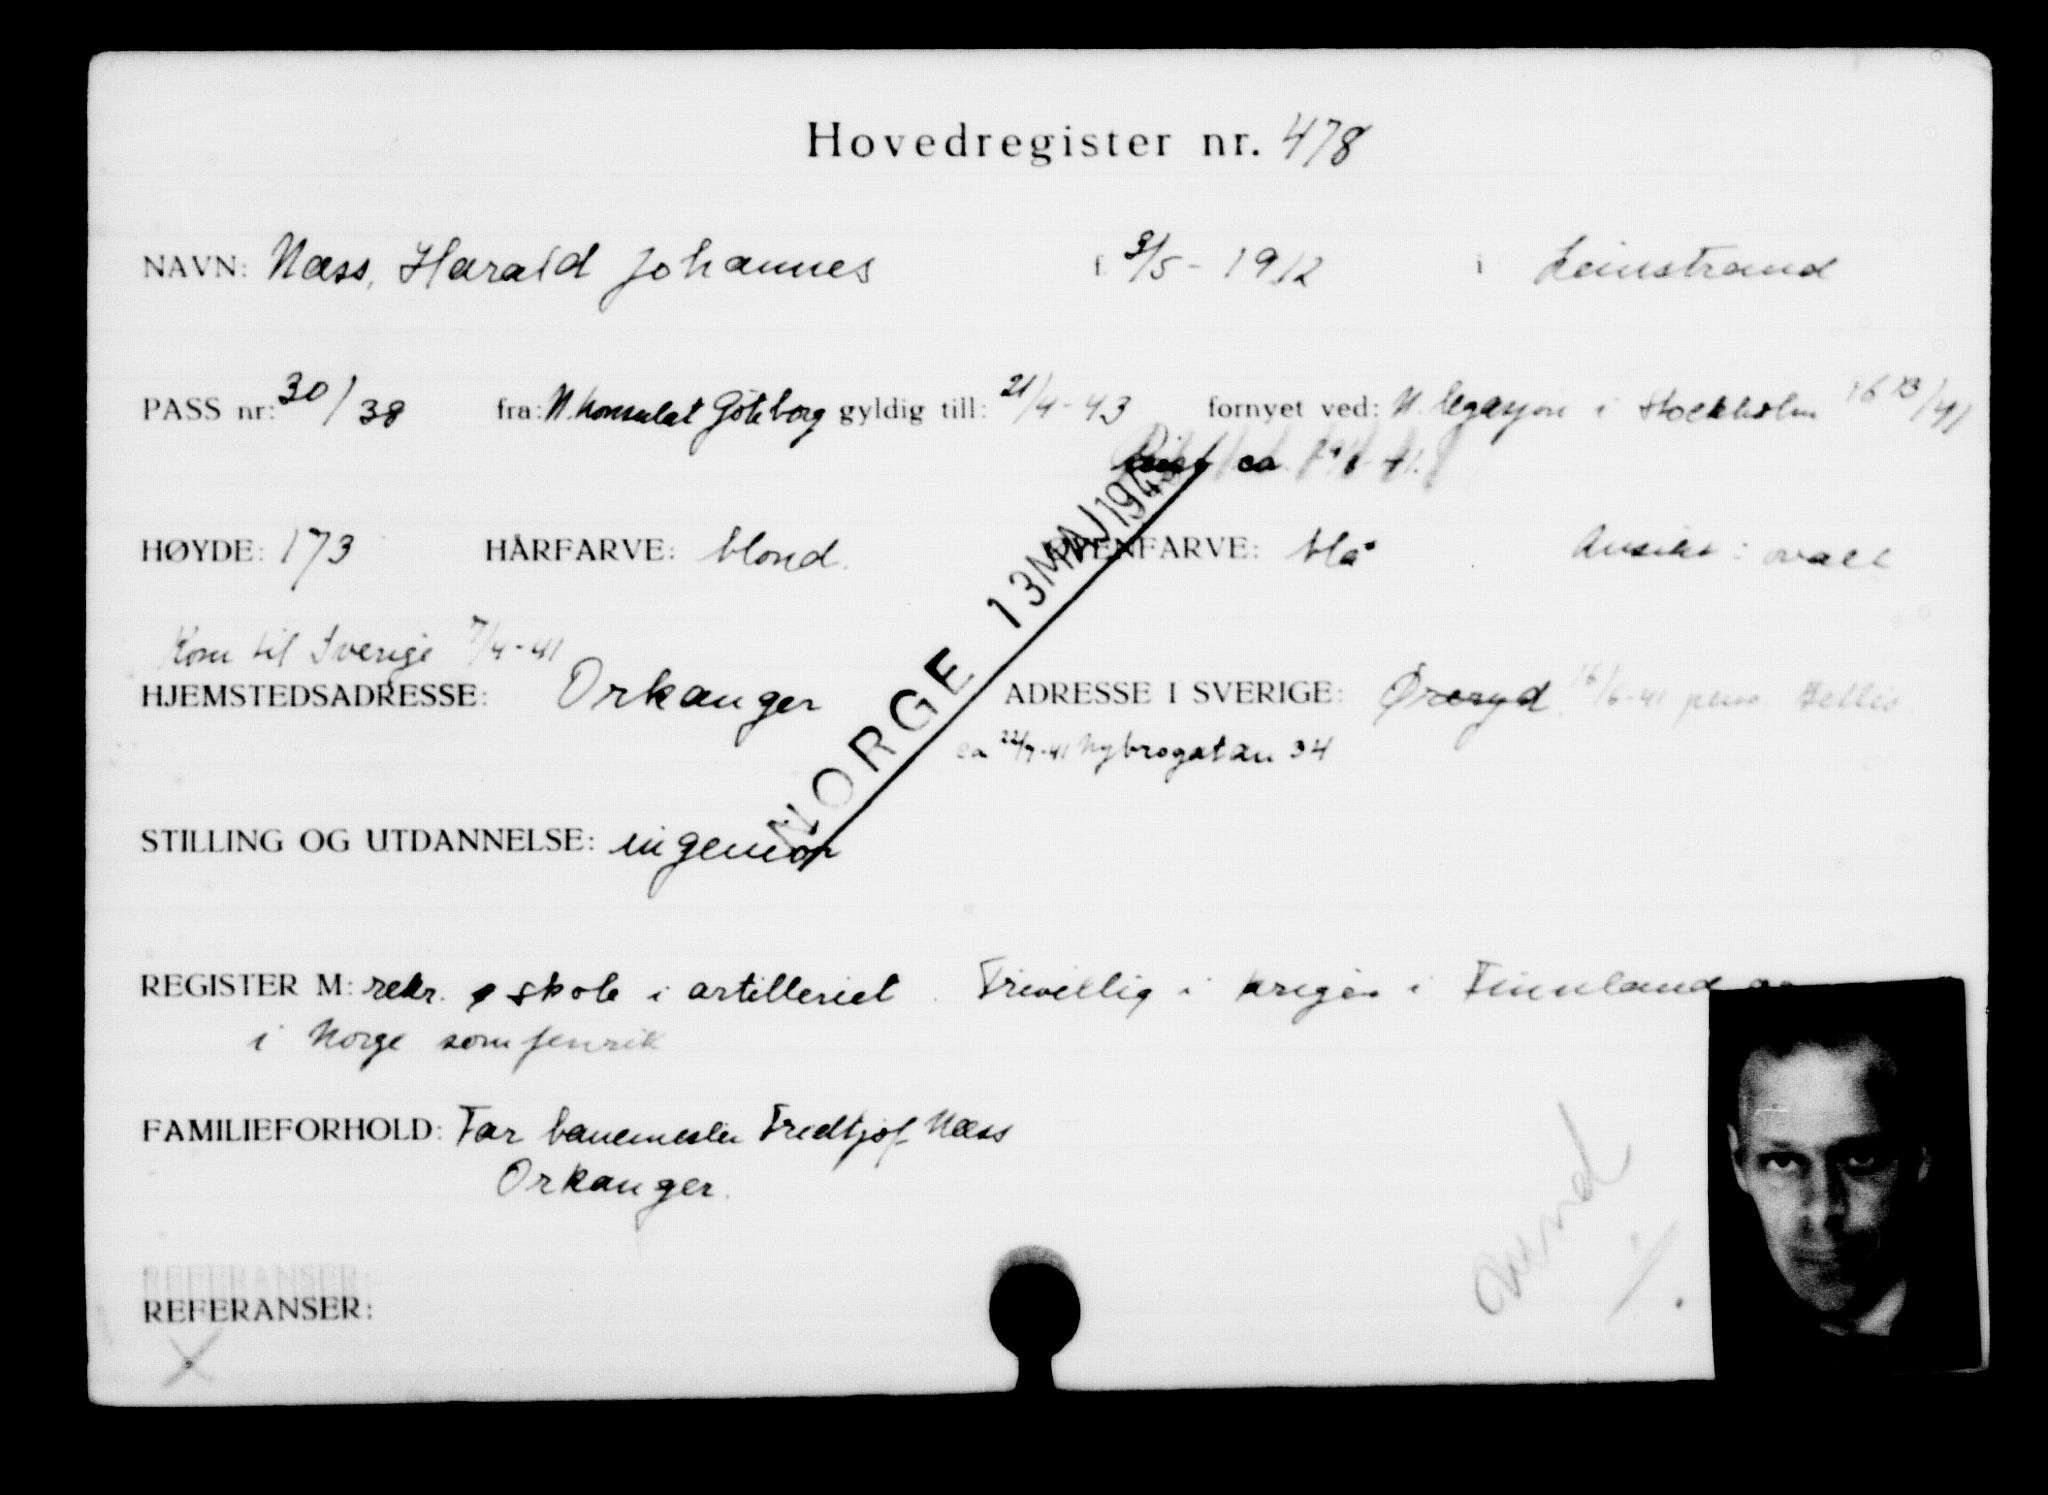 Hovedregister nr. 478
NAVN: Næss, Harald Johannes f. 3/5 - 1912 i Leinstrand
PASS nr: 30/38 fra: N. konsulat Göteborg gyldig till: 21/4-43 fornyet ved: N. legasjon i Stockholm
Reist ca
HØYDE: 173 HÅRFARVE: blond. ØYENFARVE: blå Ansikt: ovalt
Kom til Sverige 7/4-41
HJEMSTEDSADRESSE: Orkanger ADRESSE I SVERIGE: Øreryd 16/6-41 pens.
ca 22/7-41 Nybrogatan 34
NORGE 13 MAJ 194
STILLING OG UTDANNELSE: ingeniør
REGISTER M: rekr. skole i artilleriet. Frivillig i krigen i Finnland og
i Norge som fenrik
FAMILIEFORHOLD: Far banemester Fredtjof Næss
Orkanger.
REFERANSER:
REFERANSER:
X